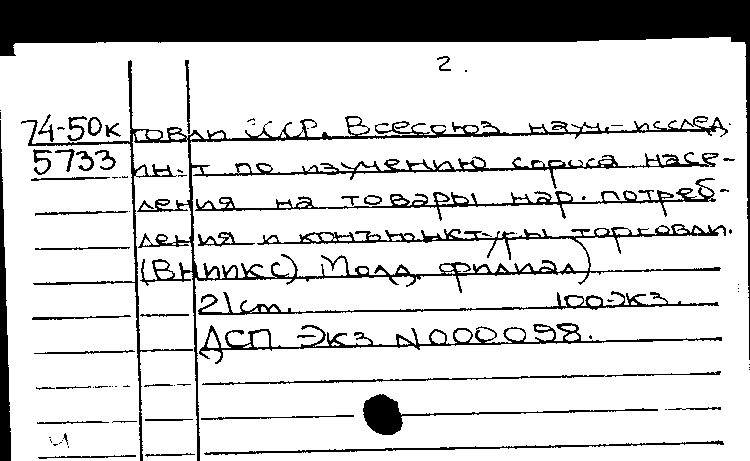 2.
74-50к говли СССР. Всесоюз. науч.-исслед.
5733 ин-т по изучению спроса насе-
ления на товары нар. потреб-
ления и конъюнктуры торговли.
(ВНИИКС). Молд. филиал)
21 cm. 100 экз.
ДСП. Экз N 000098.
ч